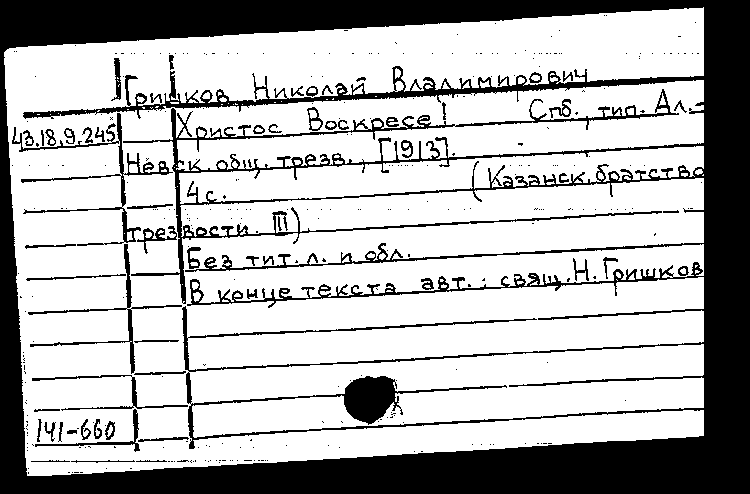 Гришков, Николай Владимирович
43.18.9.245 Христос Воскресе! Спб., тип. Ал.-
Невск. общ. трезв., [1913].
4 с. (Казанск. братство
трезвости. III).
Без тит. л. и обл.
В конце текста авт.: свящ. Н. Гришков
141-660